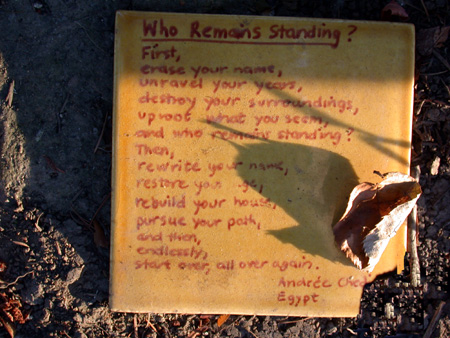 Who Remains Standing?
First,
erase your name,
unravel your years,
destroy your surroundings,
uproot what you seem,
and who remains standing?
Then,
rewrite your name,
restore your age,
rebuild your house,
pursue your path,
and then,
endlessly,
start over, all over again.
Andrée
Egypt